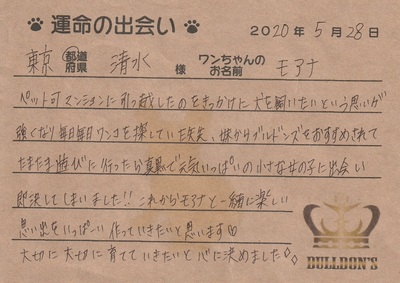 運命の出会い 2020年5月28日
東京 都道府県 清水 様 ワンちゃんのお名前 モアナ
ペット可マンションに引っ越したのをきっかけに犬を飼いたいという思いが
強くなり毎日毎日ワンコを探していた矢先、妹からブルドンズをおすすめされて
たまたま遊びに行ったら真っ黒で元気いっぱいの小さな女の子に出会い
即決してしまいました!! これからモアナと一緒に楽しい
思い出をいっぱーい作っていきたいと思います
大切に大切に育てていきたいと心に決めました
BULLDON'S